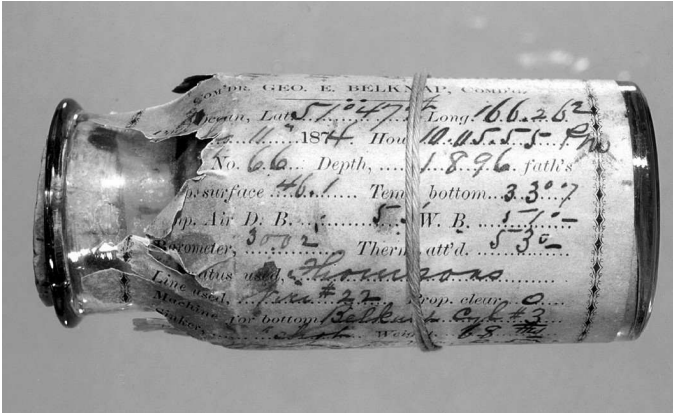 COM'DR. GEO. E. BELKNAP, COMD'G.
Ocean, Lat. 51°47' Long. 166.26
11 1874. Hour 10.05.55 PM
No. 66 Depth, 1.896 fath's
surface 46.1 Tem bottom 33°7
Air D. B. W. B. 51°
Barometer, 3002 Therm. att'd. 53°
used, Thomsons
Line used, #22 Prop. clear, 0
Machine for bottom Belknap Cyl #3
Sinker, Weig 68 lbs